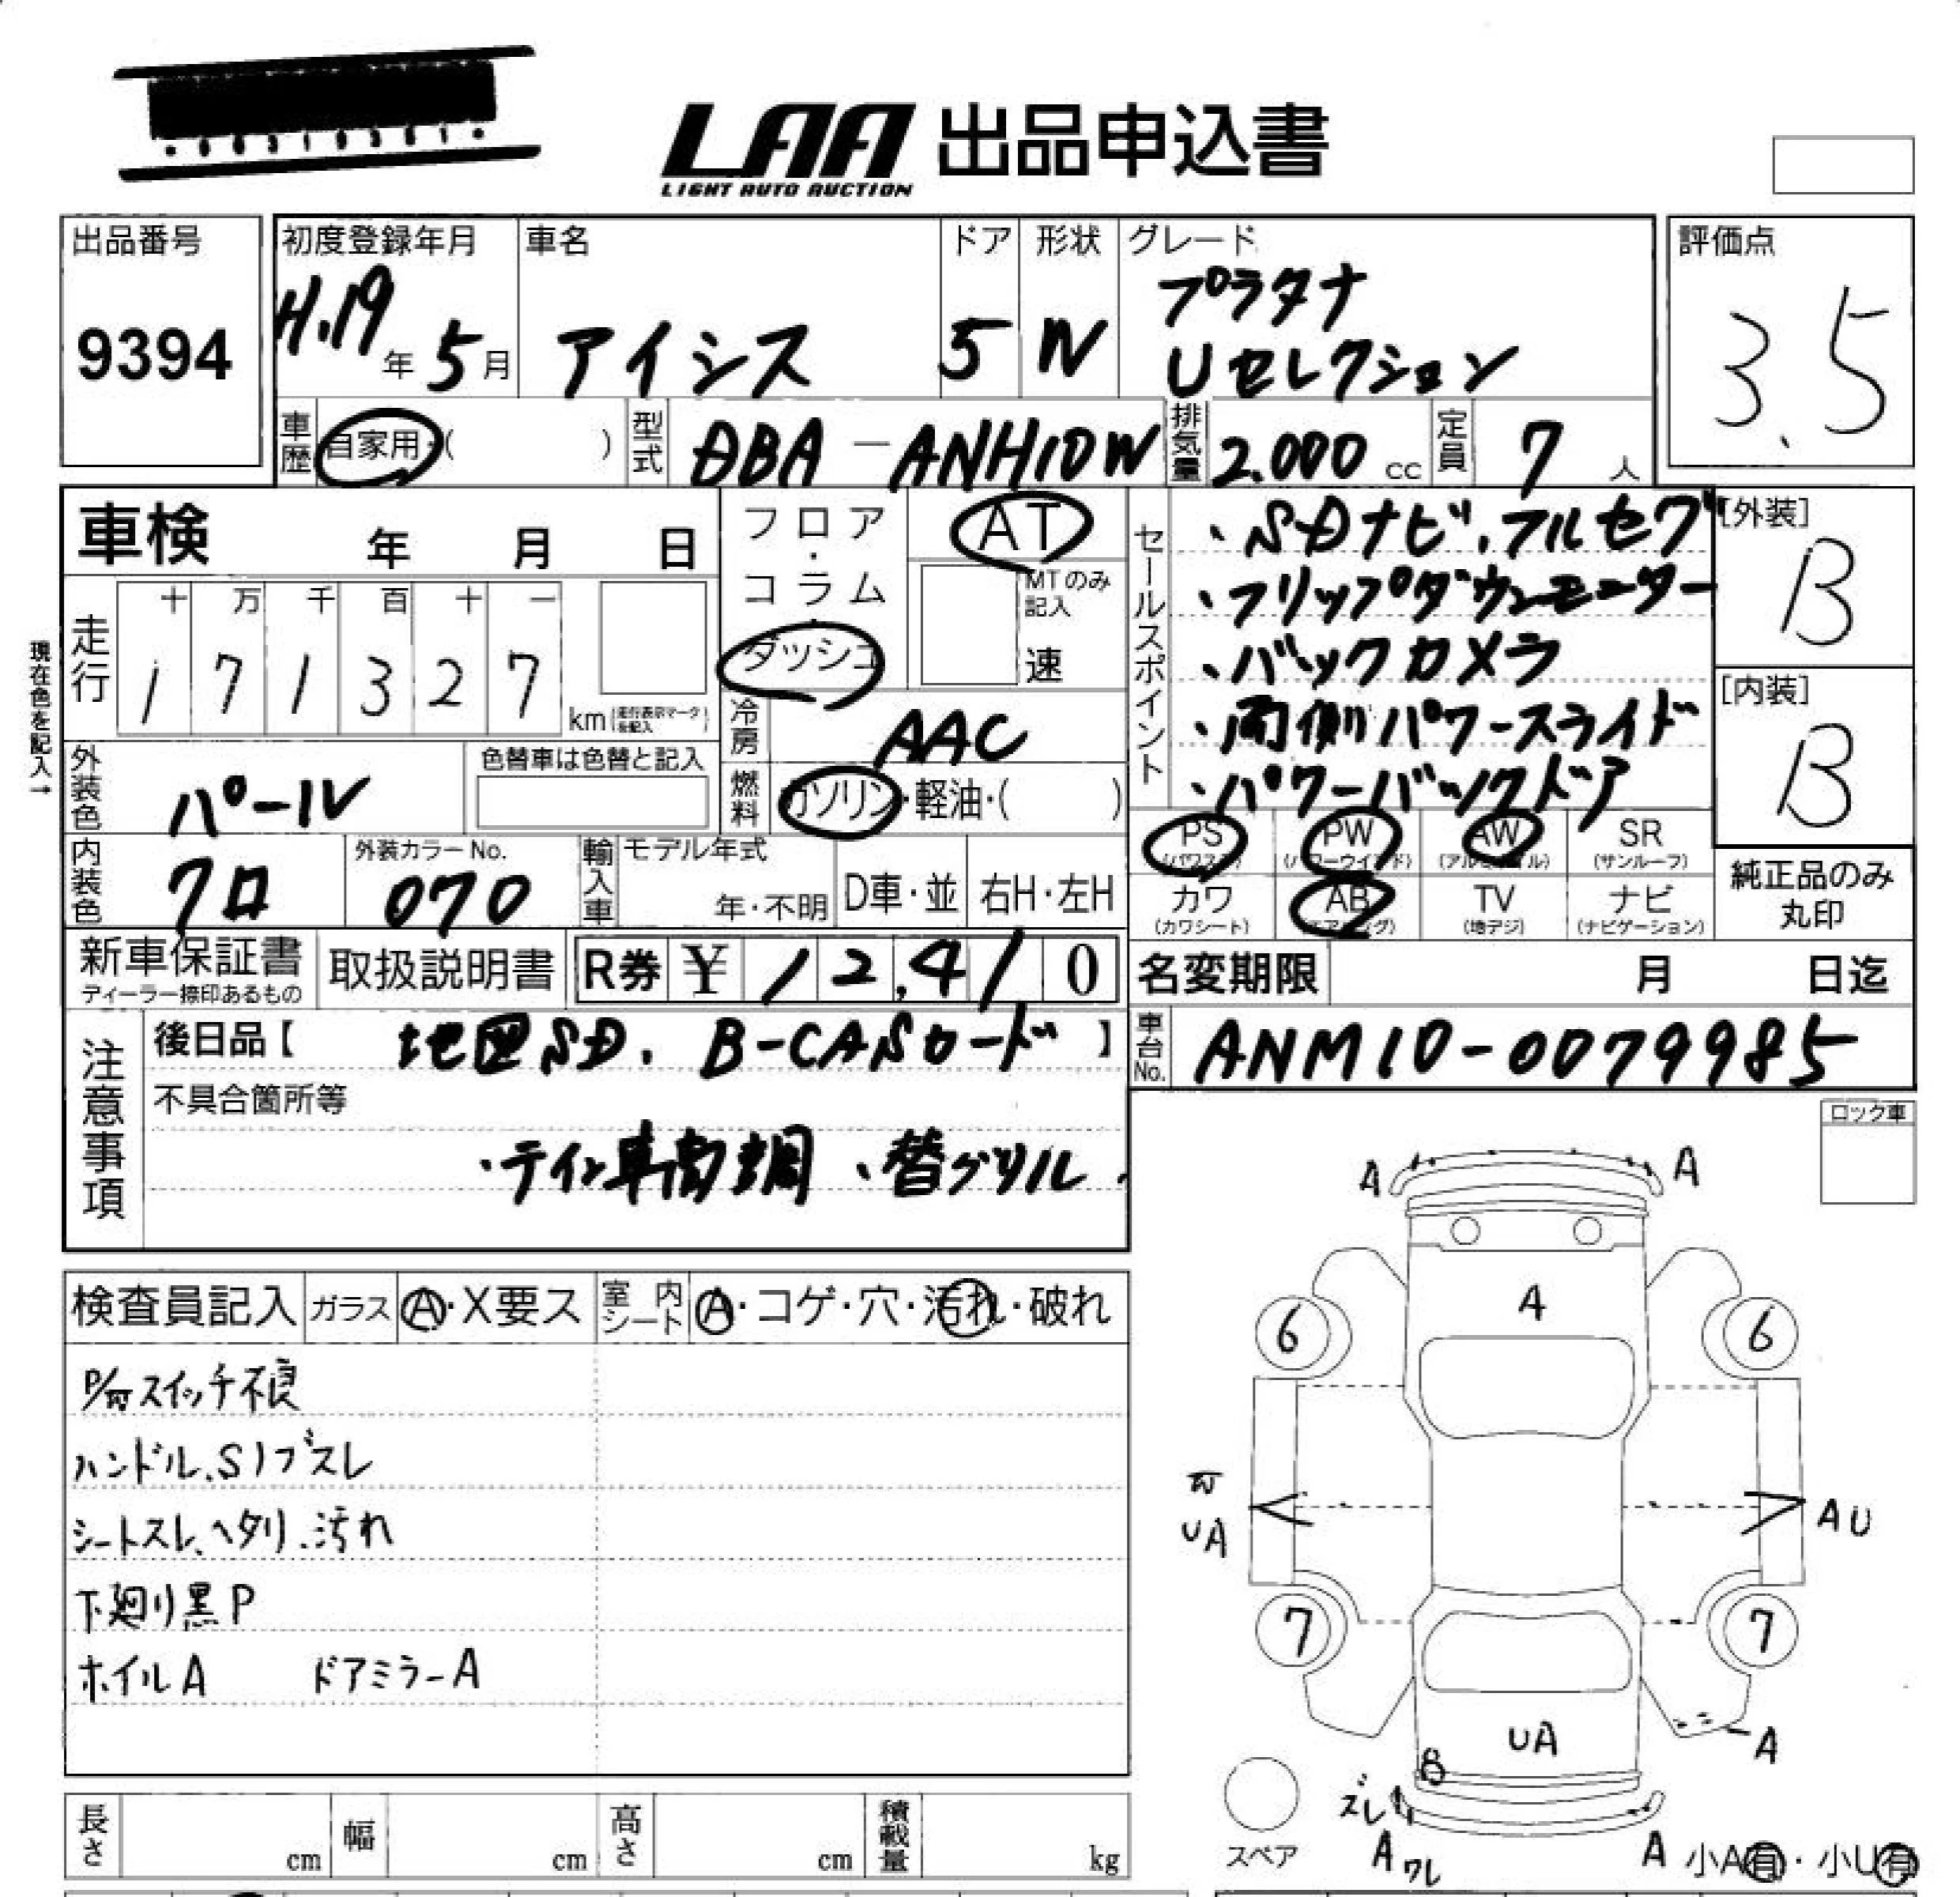 LAA 出品申込書
LIGHT AUTO AUCTION
出品番号
9394
初度登録年月
H.19年 5月
車名
アイシス
ドア
5
形状
W
グレード
プラタナ
Uセレクション
評価点
3.5
車歴
自家用・( )
型式
DBA-ANH10W
排気量
2.000 cc
定員
7 人
車検 年 月 日
フロア・コラム・ダッシュ
AT
MTのみ記入
速
セールスポイント
・SDナビ,フルセグ
・フリップダウンモニター
・バックカメラ
・両側パワースライド
・パワーバックドア
[外装]
B
[内装]
B
現在色を記入→
走行
十 万 千 百 十 一
1 7 1 3 2 7
km(走行表示マークを記入)
冷房
AAC
外装色
パール
色替車は色替と記入
燃料
ガソリン・軽油・( )
PS (パワステ)
PW (パワーウインド)
AW (アルミホイル)
SR (サンルーフ)
内装色
クロ
外装カラーNo.
070
輸入車
モデル年式
年・不明
D車・並
右H・左H
カワ (カワシート)
AB (エアバッグ)
TV (地デジ)
ナビ (ナビゲーション)
純正品のみ
丸印
新車保証書
ディーラー捺印あるもの
取扱説明書
R券 ¥ 12,410
名変期限 月 日迄
注意事項
後日品【 地図SD. B-CASカード 】
車台No.
ANM10-0079985
不具合箇所等
・替グリル
ロック車
検査員記入
ガラス
A・X要ス
室内シート
A・コゲ・穴・汚れ・破れ
スイッチ不良
ハンドル.Sノブスレ
シートスレ、ヘタリ.汚れ
下廻り黒P
ホイルA ドアミラーA
A A
A
6 6
UA AU
7 7
UA
A
8
ズレ
A ワレ
A
スペア
小A有・小U有
長さ cm
幅 cm
高さ cm
積載量 kg